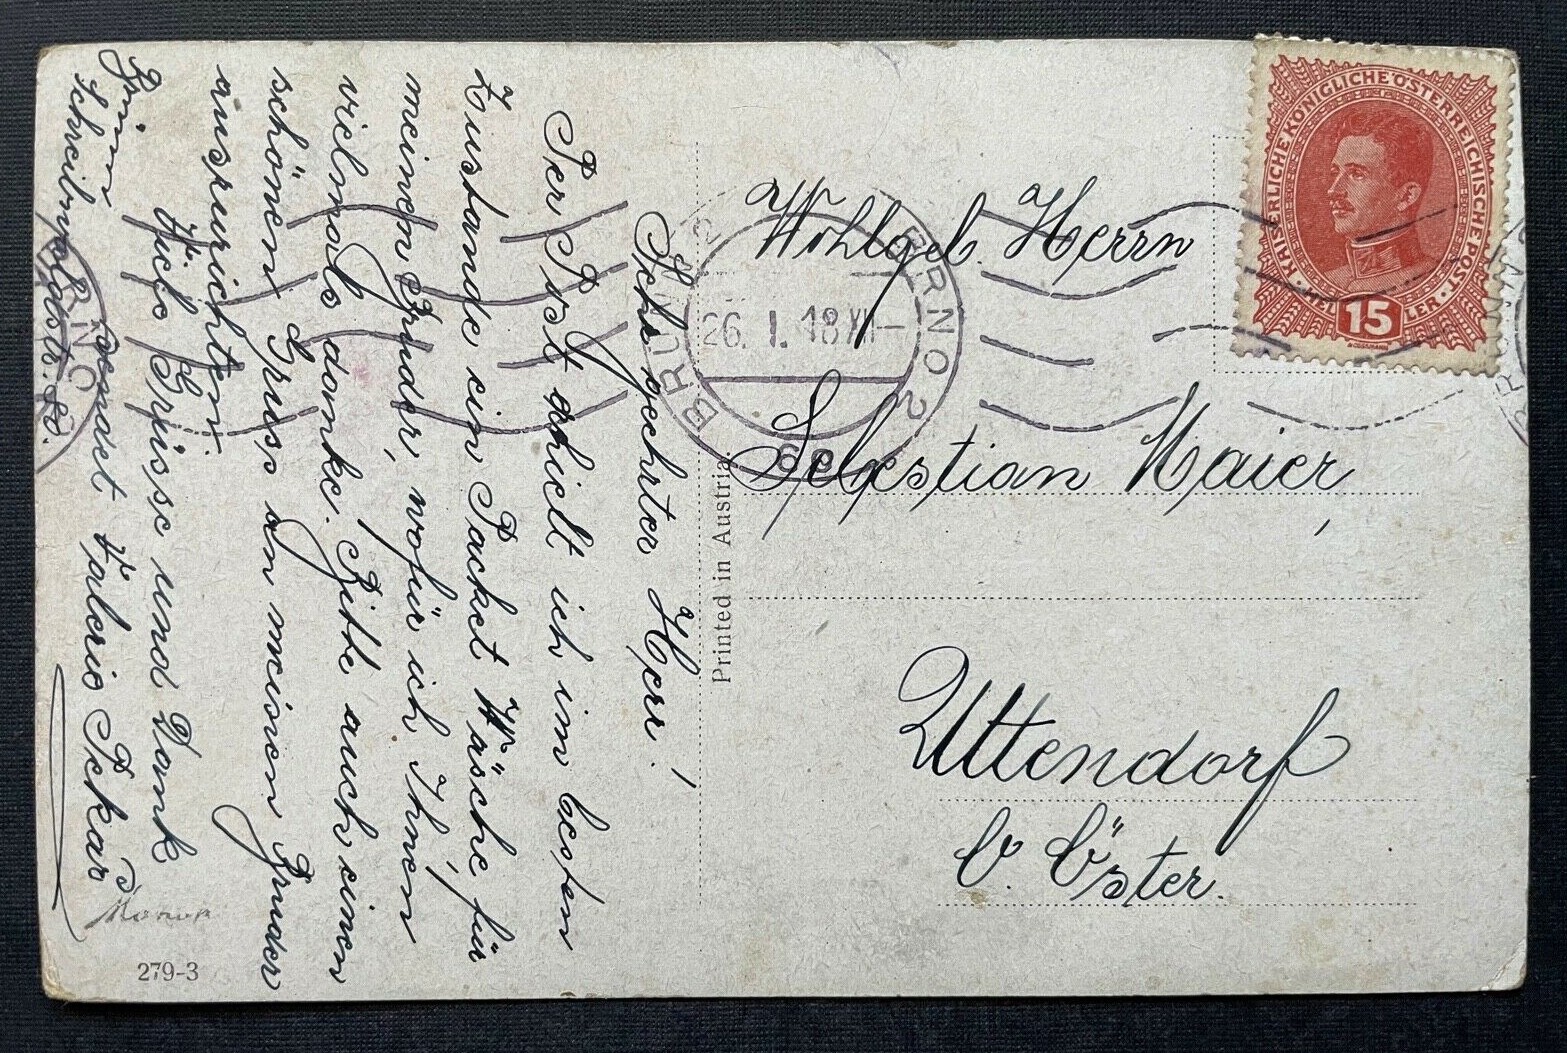 Sehr geehrter Herr!
Per Post erhielt ich im besten
Zustande ein Packet Wäsche für
meinen Bruder, wofür ich Ihnen
vielmals danke. Bitte auch einen
schönen Gruss an meinen Bruder
auszurichten.
Viele Grüsse und Dank
sendet Valerie Pekař
Brünn
Schreibwaldstr. 80.
279-3
Printed in Austria
KAISERLICHE KÖNIGLICHE ÖSTERREICHISCHE POST
15
HELLER
BRÜNN 2
BRNO 2
26. I. 18 XII
6e
Wohlgeb. Herrn
Sebastian Maier,
Uttendorf
O. Öster.